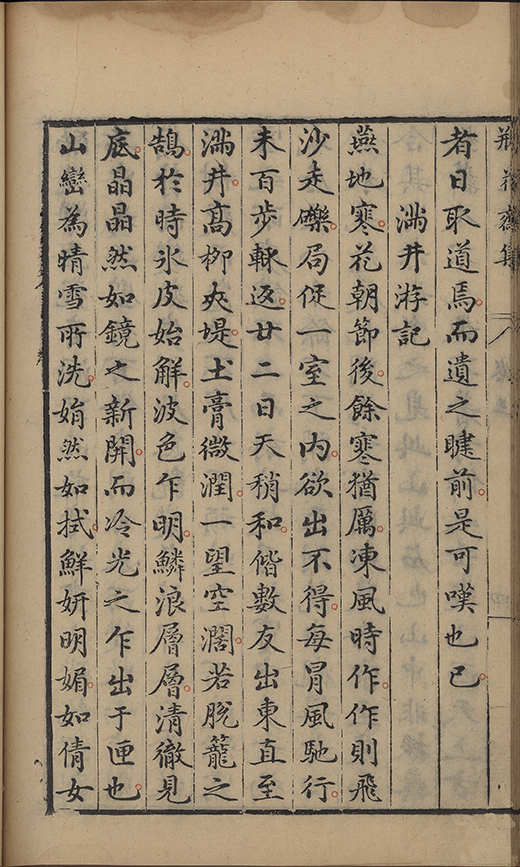 瓶花齋集
者日取道焉而遺之睫前是可嘆也已
滿井游記
燕地寒花朝節後餘寒猶厲凍風時作作則飛
沙走礫局促一室之內欲出不得每冒風馳行
未百步輒返廿二日天稍和偕數友出東直至
滿井高柳夾堤土膏微潤一望空濶若脫籠之
鵠於時氷皮始解波色乍明鱗浪層層清徹見
底晶晶然如鏡之新開而冷光之乍出于匣也
山巒為晴雪所洗娟然如拭鮮妍明媚如倩女